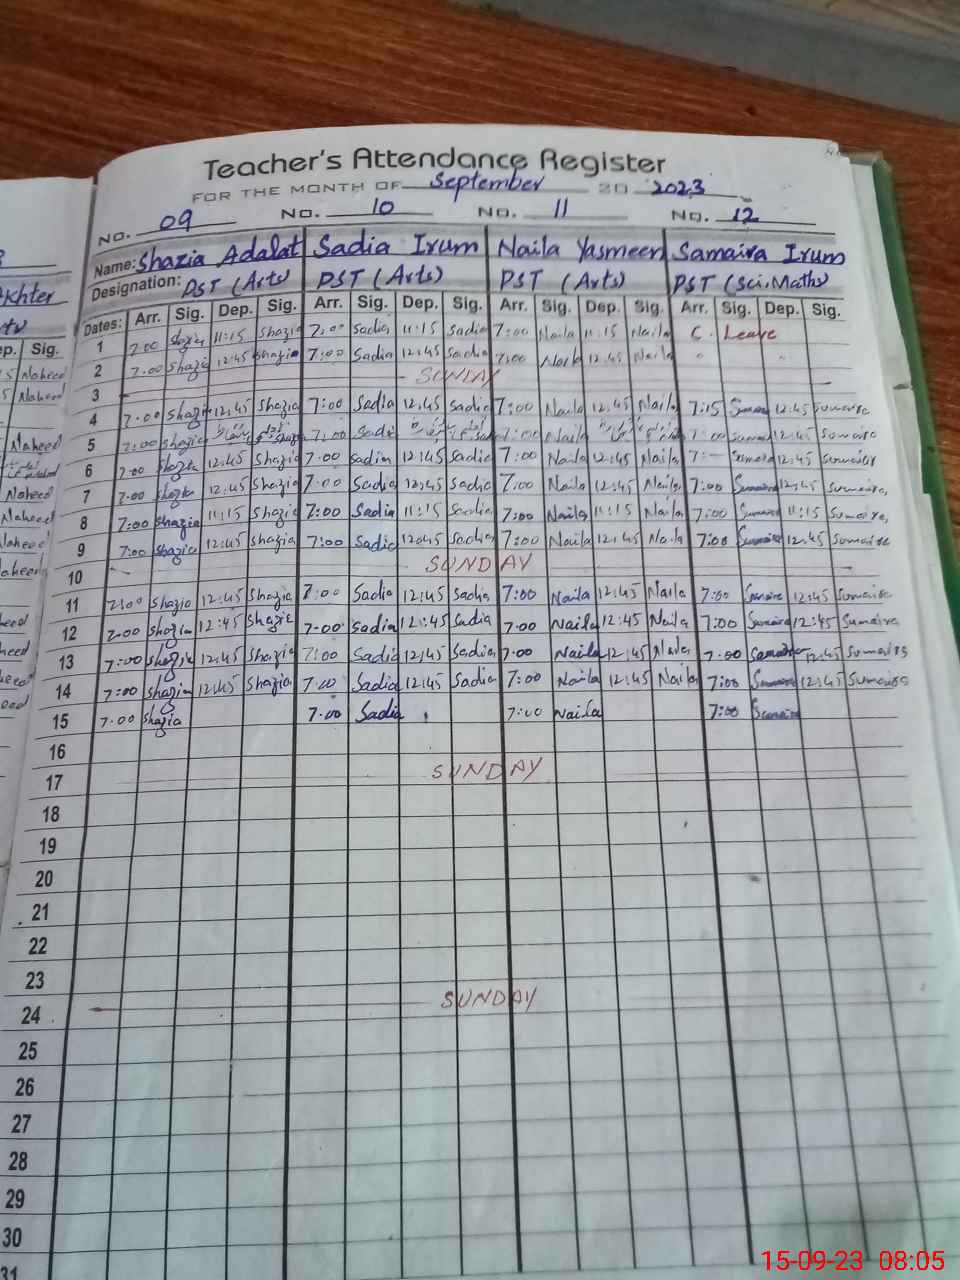 Teacher's Attendance Register
FOR THE MONTH OF September 20 2023
No. 09 No. 10 No. 11 No. 12
Name: Shazia Adalat Sadia Irum Naila Yasmeen Samaira Irum
Akhter
Designation: PST (Arts) PST (Arts) PST (Arts) PST (Sci, Math)
Dates: Arr. Sig. Dep. Sig. Arr. Sig. Dep. Sig. Arr. Sig. Dep. Sig. Arr. Sig. Dep. Sig.
Sig.
1 7:00 Shazia 11:15 Shazia 7:00 Sadia 11:15 Sadia 7:00 Naila 11:15 Naila C. Leave
Naheed
2 7:00 Shazia 12:45 Shazia 7:00 Sadia 12:45 Sadia 7:00 Naila 12:45 Naila " "
Naheed
3 SUNDAY
4 7:00 Shazia 12:45 Shazia 7:00 Sadia 12:45 Sadia 7:00 Naila 12:45 Naila 7:15 Sumaira 12:45 Sumaira
Naheed
5 7:00 Shazia 7:00 Sadia 7:00 Naila 7:00 Sumaira 12:45 Sumaira
6 7:00 Shazia 12:45 Shazia 7:00 Sadia 12:45 Sadia 7:00 Naila 12:45 Naila 7:— Sumaira 12:45 Sumaira
Naheed
7 7:00 Shazia 12:45 Shazia 7:00 Sadia 12:45 Sadia 7:00 Naila 12:45 Naila 7:00 Sumaira 12:45 Sumaira
Naheed
8 7:00 Shazia 11:15 Shazia 7:00 Sadia 11:15 Sadia 7:00 Naila 11:15 Naila 7:00 Sumaira 11:15 Sumaira
Naheed
9 7:00 Shazia 12:45 Shazia 7:00 Sadia 12:45 Sadia 7:00 Naila 12:45 Naila 7:00 Sumaira 12:45 Sumaira
10 SUNDAY
11 7:00 Shazia 12:45 Shazia 7:00 Sadia 12:45 Sadia 7:00 Naila 12:45 Naila 7:00 Sumaira 12:45 Sumaira
12 7:00 Shazia 12:45 Shazia 7:00 Sadia 12:45 Sadia 7:00 Naila 12:45 Naila 7:00 Sumaira 12:45 Sumaira
13 7:00 Shazia 12:45 Shazia 7:00 Sadia 12:45 Sadia 7:00 Naila 12:45 Naila 7:00 Samaira 12:45 Sumaira
14 7:00 Shazia 12:45 Shazia 7:00 Sadia 12:45 Sadia 7:00 Naila 12:45 Naila 7:00 Sumaira 12:45 Sumaira
15 7:00 Shazia 7:00 Sadia 7:00 Naila 7:00 Sumaira
16
17 SUNDAY
18
19
20
21
22
23
24 SUNDAY
25
26
27
28
29
30
31
15-09-23 08:05